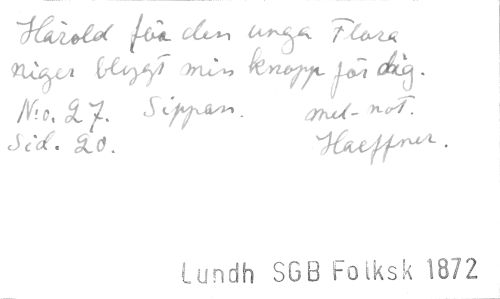 Härold för den unga Flora
niger blygt min knopp för dig.
N:o. 27. Sippan. mel-not.
Sid. 20. Haeffner.
Lundh SGB Folksk 1872